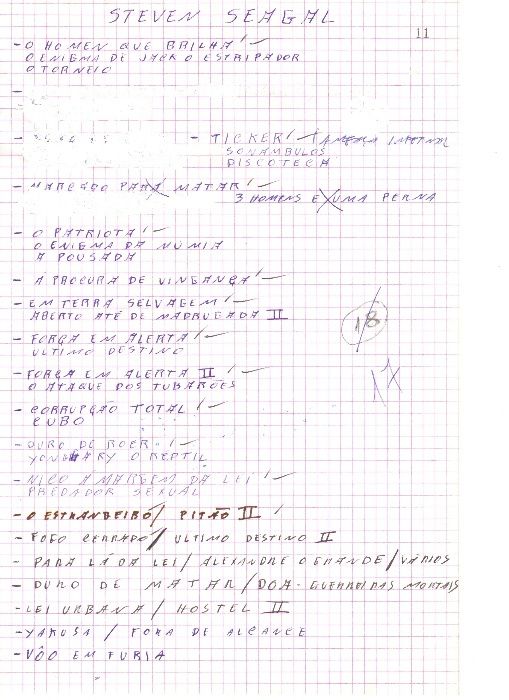 STEVEN SEAGAL
11
- O HOMEN QUE BRILHA! -
O ENIGMA DE JACK O ESTRIPADOR
O TORNEIO
-
- TICKER! - AMEAÇA INFERNAL
SONÂMBULOS
DISCOTECA
- MARCADO PARA MATAR! -
3 HOMENS E UMA PERNA
- O PATRIOTA! -
O ENIGMA DA NÚMIA
A POUSADA
- A PROCURA DE VINGANÇA! -
- EM TERRA SELVAGEM! -
ABERTO ATÉ DE MADRUGADA II
18
- FORÇA EM ALERTA! -
ULTIMO DESTINO
- FORÇA EM ALERTA II! -
O ATAQUE DOS TUBARÕES
17
- CORRUPÇÃO TOTAL! -
CUBO
- DURO DE ROER! -
YONGARY O REPTIL
- NICO A MARGEM DA LEI! -
PREDADOR SEXUAL
- O ESTRANGEIRO / PITÃO II!
- FOGO CERRADO / ULTIMO DESTINO II
- PARA LÁ DA LEI / ALEXANDRE O GRANDE / VÁRIOS
- DURO DE MATAR / DOA - GUERREIRAS MORTAIS
- LEI URBANA / HOSTEL II
- YAKUSA / FORA DE ALCANCE
- VÔO EM FURIA